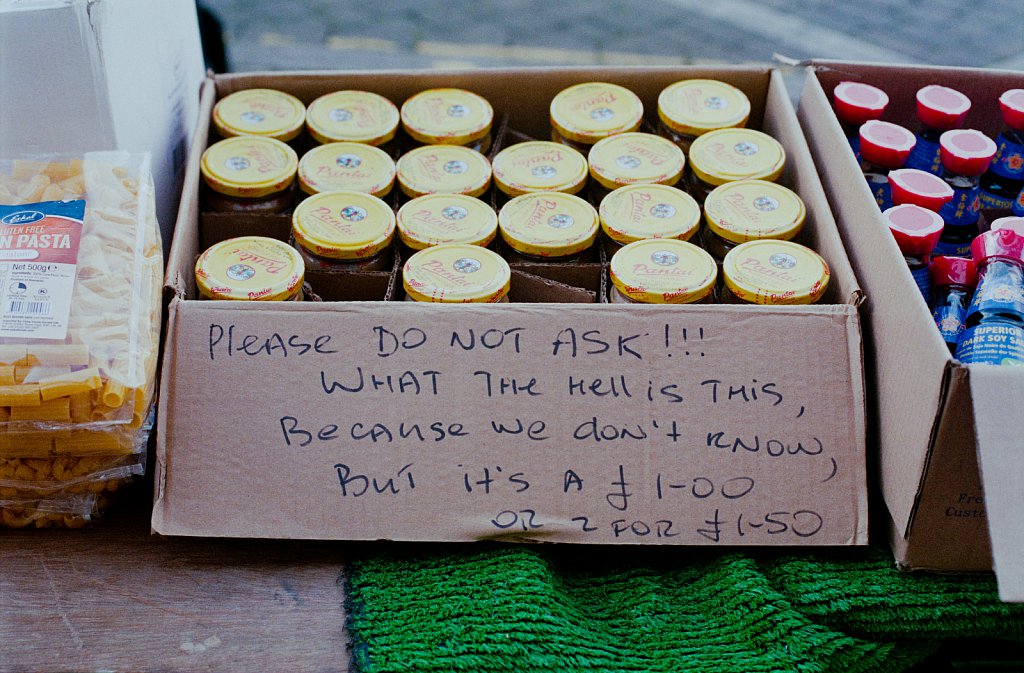 Pantai
Pantai
Pantai
Pantai
Pantai
Pantai
GLUTEN FREE
N PASTA
Net 500g e
SUPERIOR
SUPERIOR
DARK SOY SA
PLEASE DO NOT ASK!!!
WHAT THE HELL IS THIS,
BECAUSE WE don't KNOW,
BUT it's A £1-00
OR 2 FOR £1-50
Fre
Custo